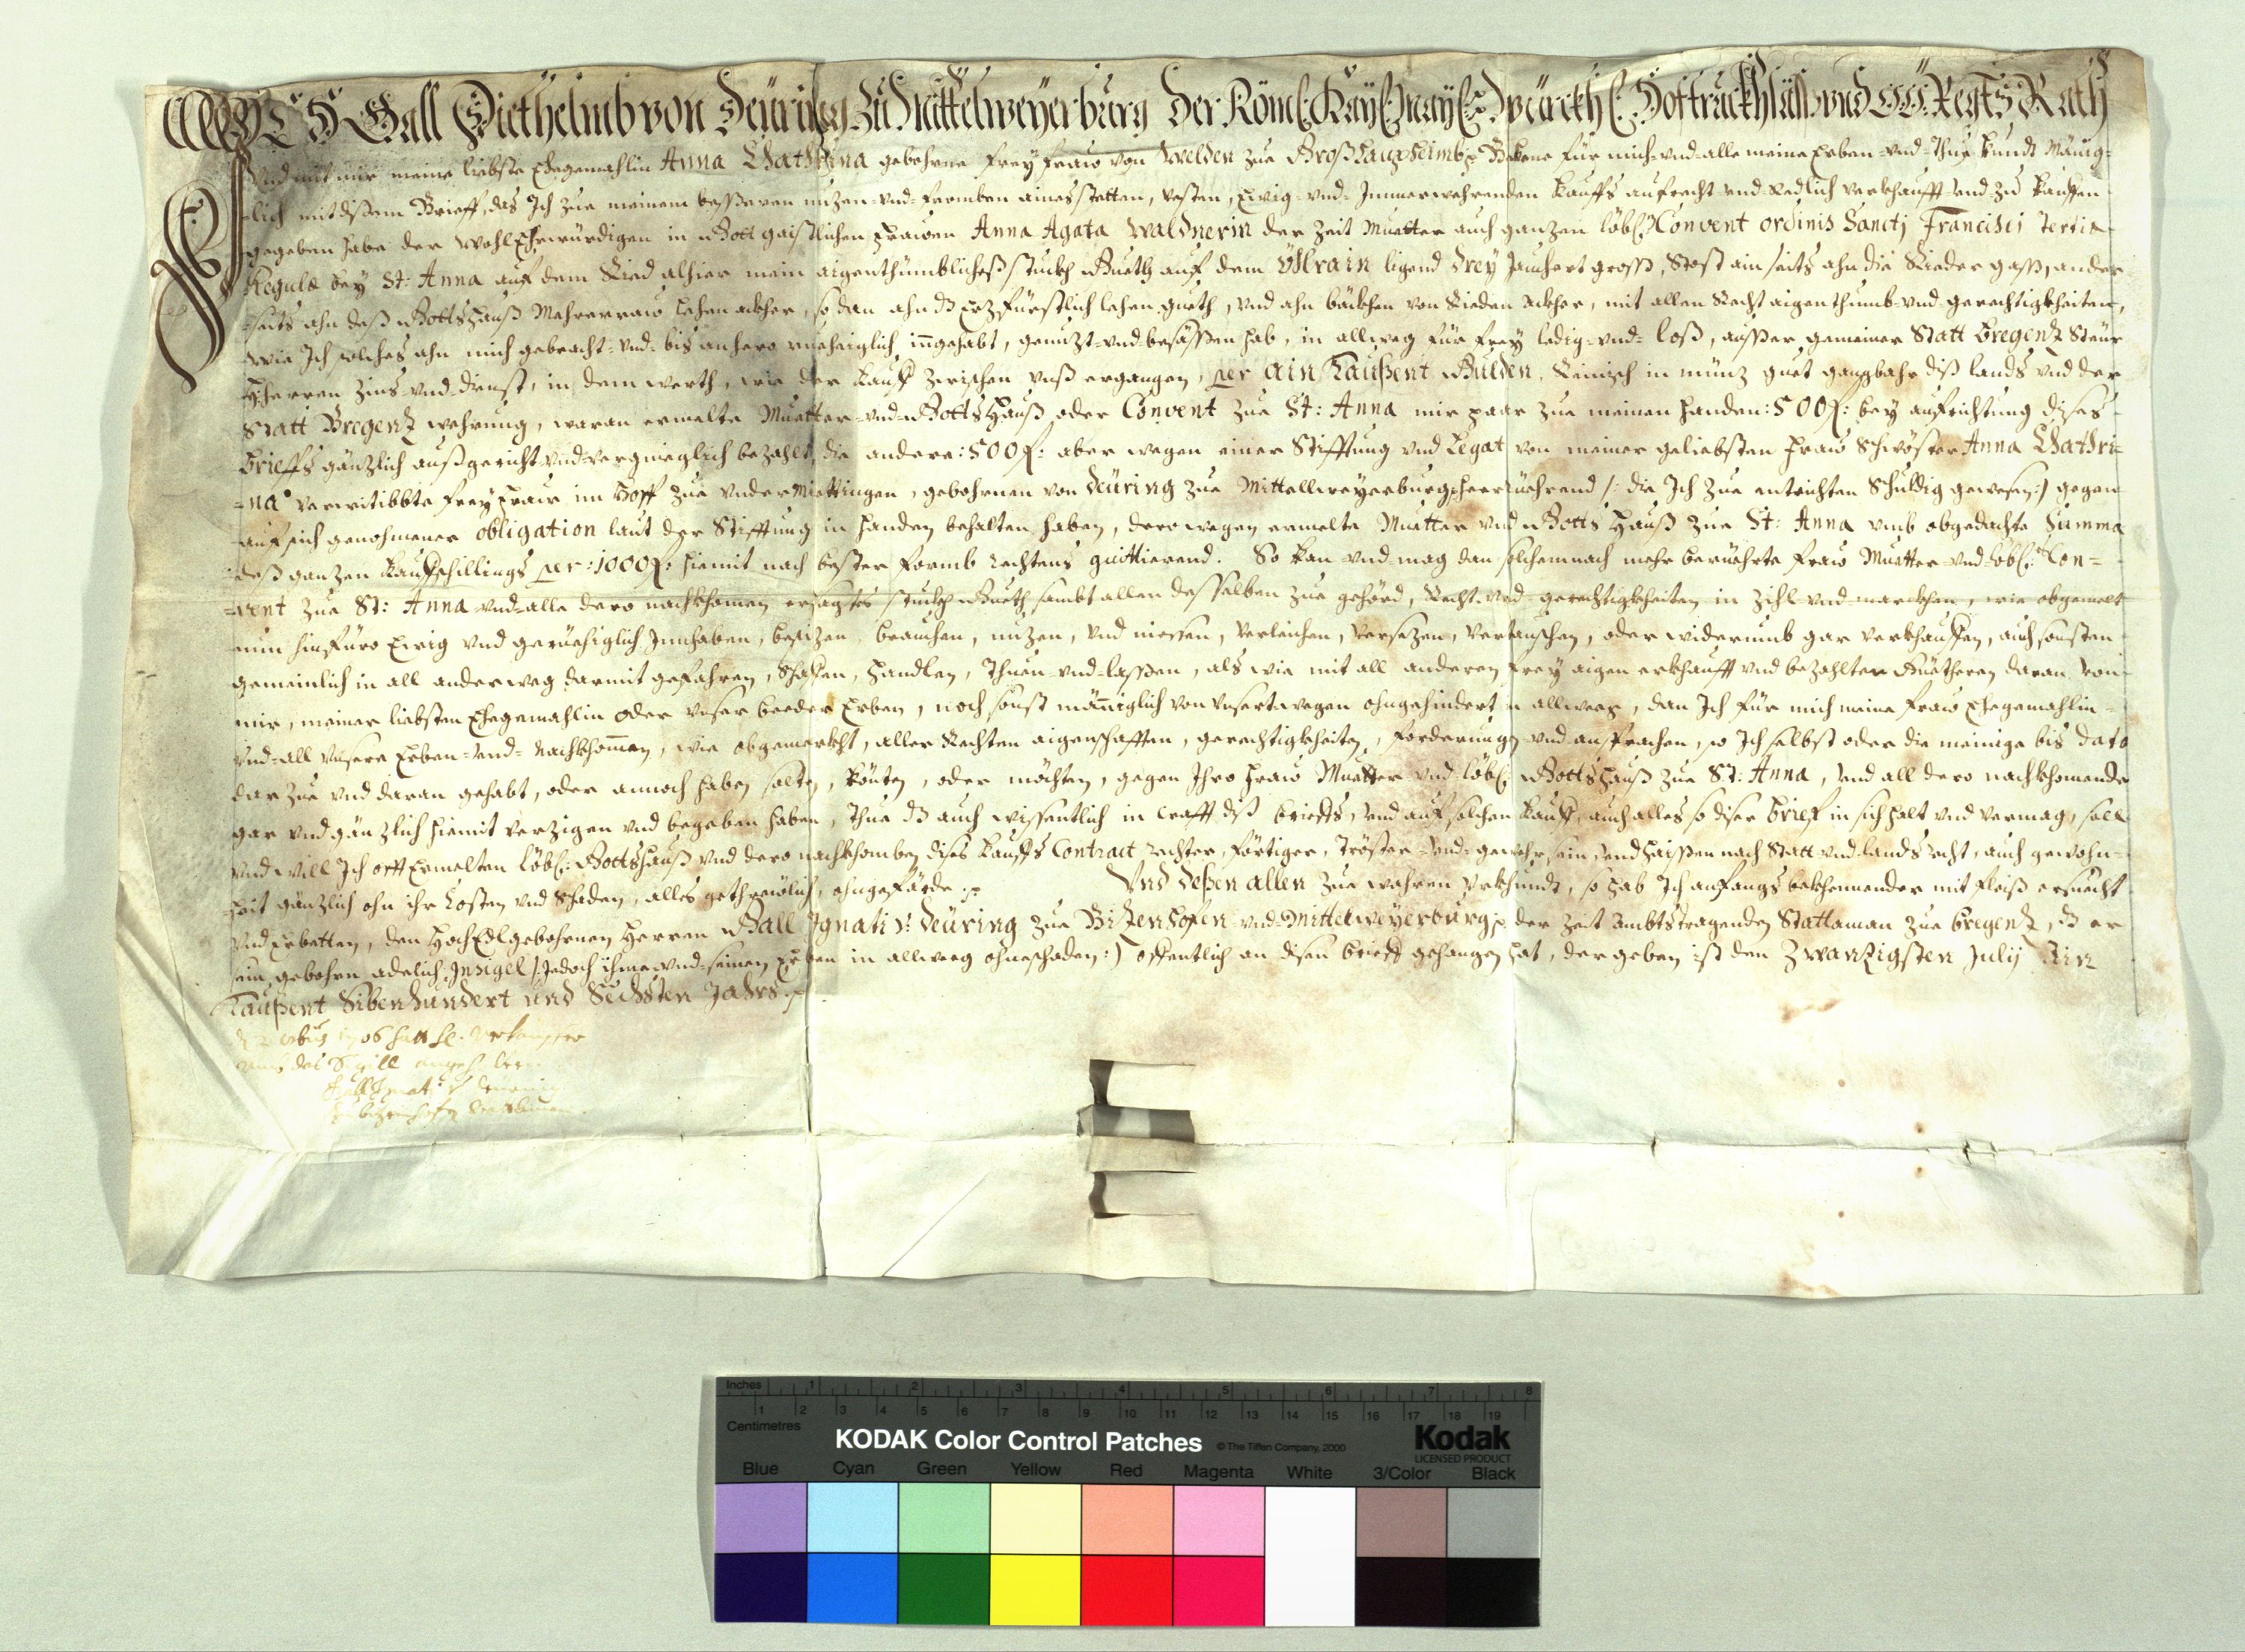 ICH Gall Diethelmb von Deüring zu Mittelweyerburg Der Röm: Kay: May: würckh: Hoftruckhsäss vnd OÖ: Regts Rath
Vnd mit mir meine liebste Ehegemahlin Anna Catharina gebohrne Frey Fraw von Welden zue Großlaupheimb Bekene für mich vnd alle meine Erben vnd Thue kundt Mänig-
lich mit disem Brieff, das Ich zue meinem besseren nuzen vnd fromben aines stetten, vesten, Ewig vnd Immerwehrenden Kauffs aufrecht vnd Redlich verkhaufft vnd zu kauffen
gegeben habe der WohlEhrwürdigen in Gott gaistlichen Frawen Anna Agata Waldnerin der zeit Muetter auch ganzen löbl: Convent ordinis Sanctj Francisci Tertiæ
Regulæ bey St: Anna auf dem Ried alhier mein aigenthumblicheß stuckh Gueth auf dem Ölrain ligend drey Jauchert groß, Stost ain seits ahn die Rieder gaß, ander-
seits ahn deß Gottshauß Mehrerraw Lehen ackher, so dan ahn dz Erzfürstlich lehen gueth, vnd ahn bäckhen von Rieden Ackher, mit allen Recht aigenthumb vnd gerechtigkheiten,
wie Ich solches ahn mich gebracht vnd bis anhero ruehiglich inngehabt, genuzt vnd besässen hab, in allweg für frey ledig vnd loß, ausser gemeiner Statt Bregentz Steur
Herren zins vnd dienst, in dem werth, wie der Kauff zwischen vnß ergangen, per ain Taußent Gulden, Reinisch in münz guet gangbahr diß lands vnd der
Statt Bregentz wehrung, waran ermelte Muetter vnd GottsHauß oder Convent zue St: Anna mir paar zue meinen Handen: 500 f: bey aufrichtung dises
Brieffs gänzlich außgericht vnd vergnieglich bezahlt, die andere: 500 f: aber wegen einer Stifftung vnd Legat von meiner geliebsten Fraw Schwöster Anna Cathri-
na verwitibbte Frey Fraw im Hoff zue Vndermiettingen, gebohrnen von Deüring zue Mittellweyerburg herrüehrend /: die Ich zue entrichten Schuldig gewesen:/ gegen
auf sich genohmener obligation laut der Stifftung in Handen behalten haben, derowegen ermelte Muetter vnd GottsHauß zue St: Anna vmb obgedachte Summa
deß ganzen Kauffschillings per: 1000 f: hiemit nach bester formb rechtens quittierend. So kan vnd mag dan solchemnach mehr beruehrte Fraw Muetter vnd löbl: Con-
vent zue St: Anna vnd alle dero nachkhomen ersagtes stuckh Gueth sambt allen desselben zue gehörd, Recht vnd gerechtigkheiten in zihl vnd marckhen, wie obgemelt
nun hinfüro Ewig vnd geruehiglich Innhaben, besizen, brauchen, nuzen, vnd niessen, verleichen, versezen, vertauschen, oder widerumb gar verkhauffen, auch sonsten
gemeinlich in all ander weg darmit gefahren, Schaffen, Handlen, Thuen vnd lassen, als wie mit all anderen frey aigen erkhaufft vnd bezahlten Güetheren daran von
mir, meiner liebsten Ehegemahlin oder vnser beeder Erben, noch sonst männiglich von vnsertwegen ohngehindert in allweeg, dan Ich für mich meine Fraw Ehegemahlin
vnd all vnsere Erben vnd Nachkhommen, wie obgemerkht, aller Rechten aigenschafften, gerechtigkheiten, forderungen vnd ansprachen, so Ich selbst oder die meinige bis dato
darzue vnd daran gehabt, oder annoch haben solten, könten, oder möchten, gegen Ihro Fraw Muetter vnd löbl: Gottshauß zue St: Anna, vnd all dero nachkhomende
gar vnd gänzlich hiemit verzigen vnd begeben haben, Thue dz auch wissentlich in crafft diß brieffs, vnd auf solchen Kauff, auch alles so diser brief in sich halt vnd vermag, soll
vnd will Ich offt Ermelten löbl: Gottshauß vnd dero nachkhomben dises Kauffs Contract rechter, förtiger, Tröster vnd gewehr sein, vnd haissen nach Statt vnd lands recht, auch gewohn-
heit gänzlich ohn ihr Costen vnd Schaden, alles gethrewlich, ohngefärde. Vnd deßen allen zue wahren Vrkhundt, so hab Ich anfangs bekhennender mit fleiß ersucht
vnd Erbetten, den HochEdlgebohrnen Herren Gall Ignati v: Deüring zue Bizenhofen vnd Mittelweyerburg der zeit Ambtstragenden Stattaman zue Bregentz, dz er
sein gebohrn adelich Insigel /: Jedoch ihme vnd seinen Erben in allweeg ohneschaden:/ offentlich an disen brieff gehangen hat, der geben ist den Zwanzigsten July Ein
Taußent Sibenhundert und Sechsten Jahrs.
das Sigill
Gall Ignati v Deuring